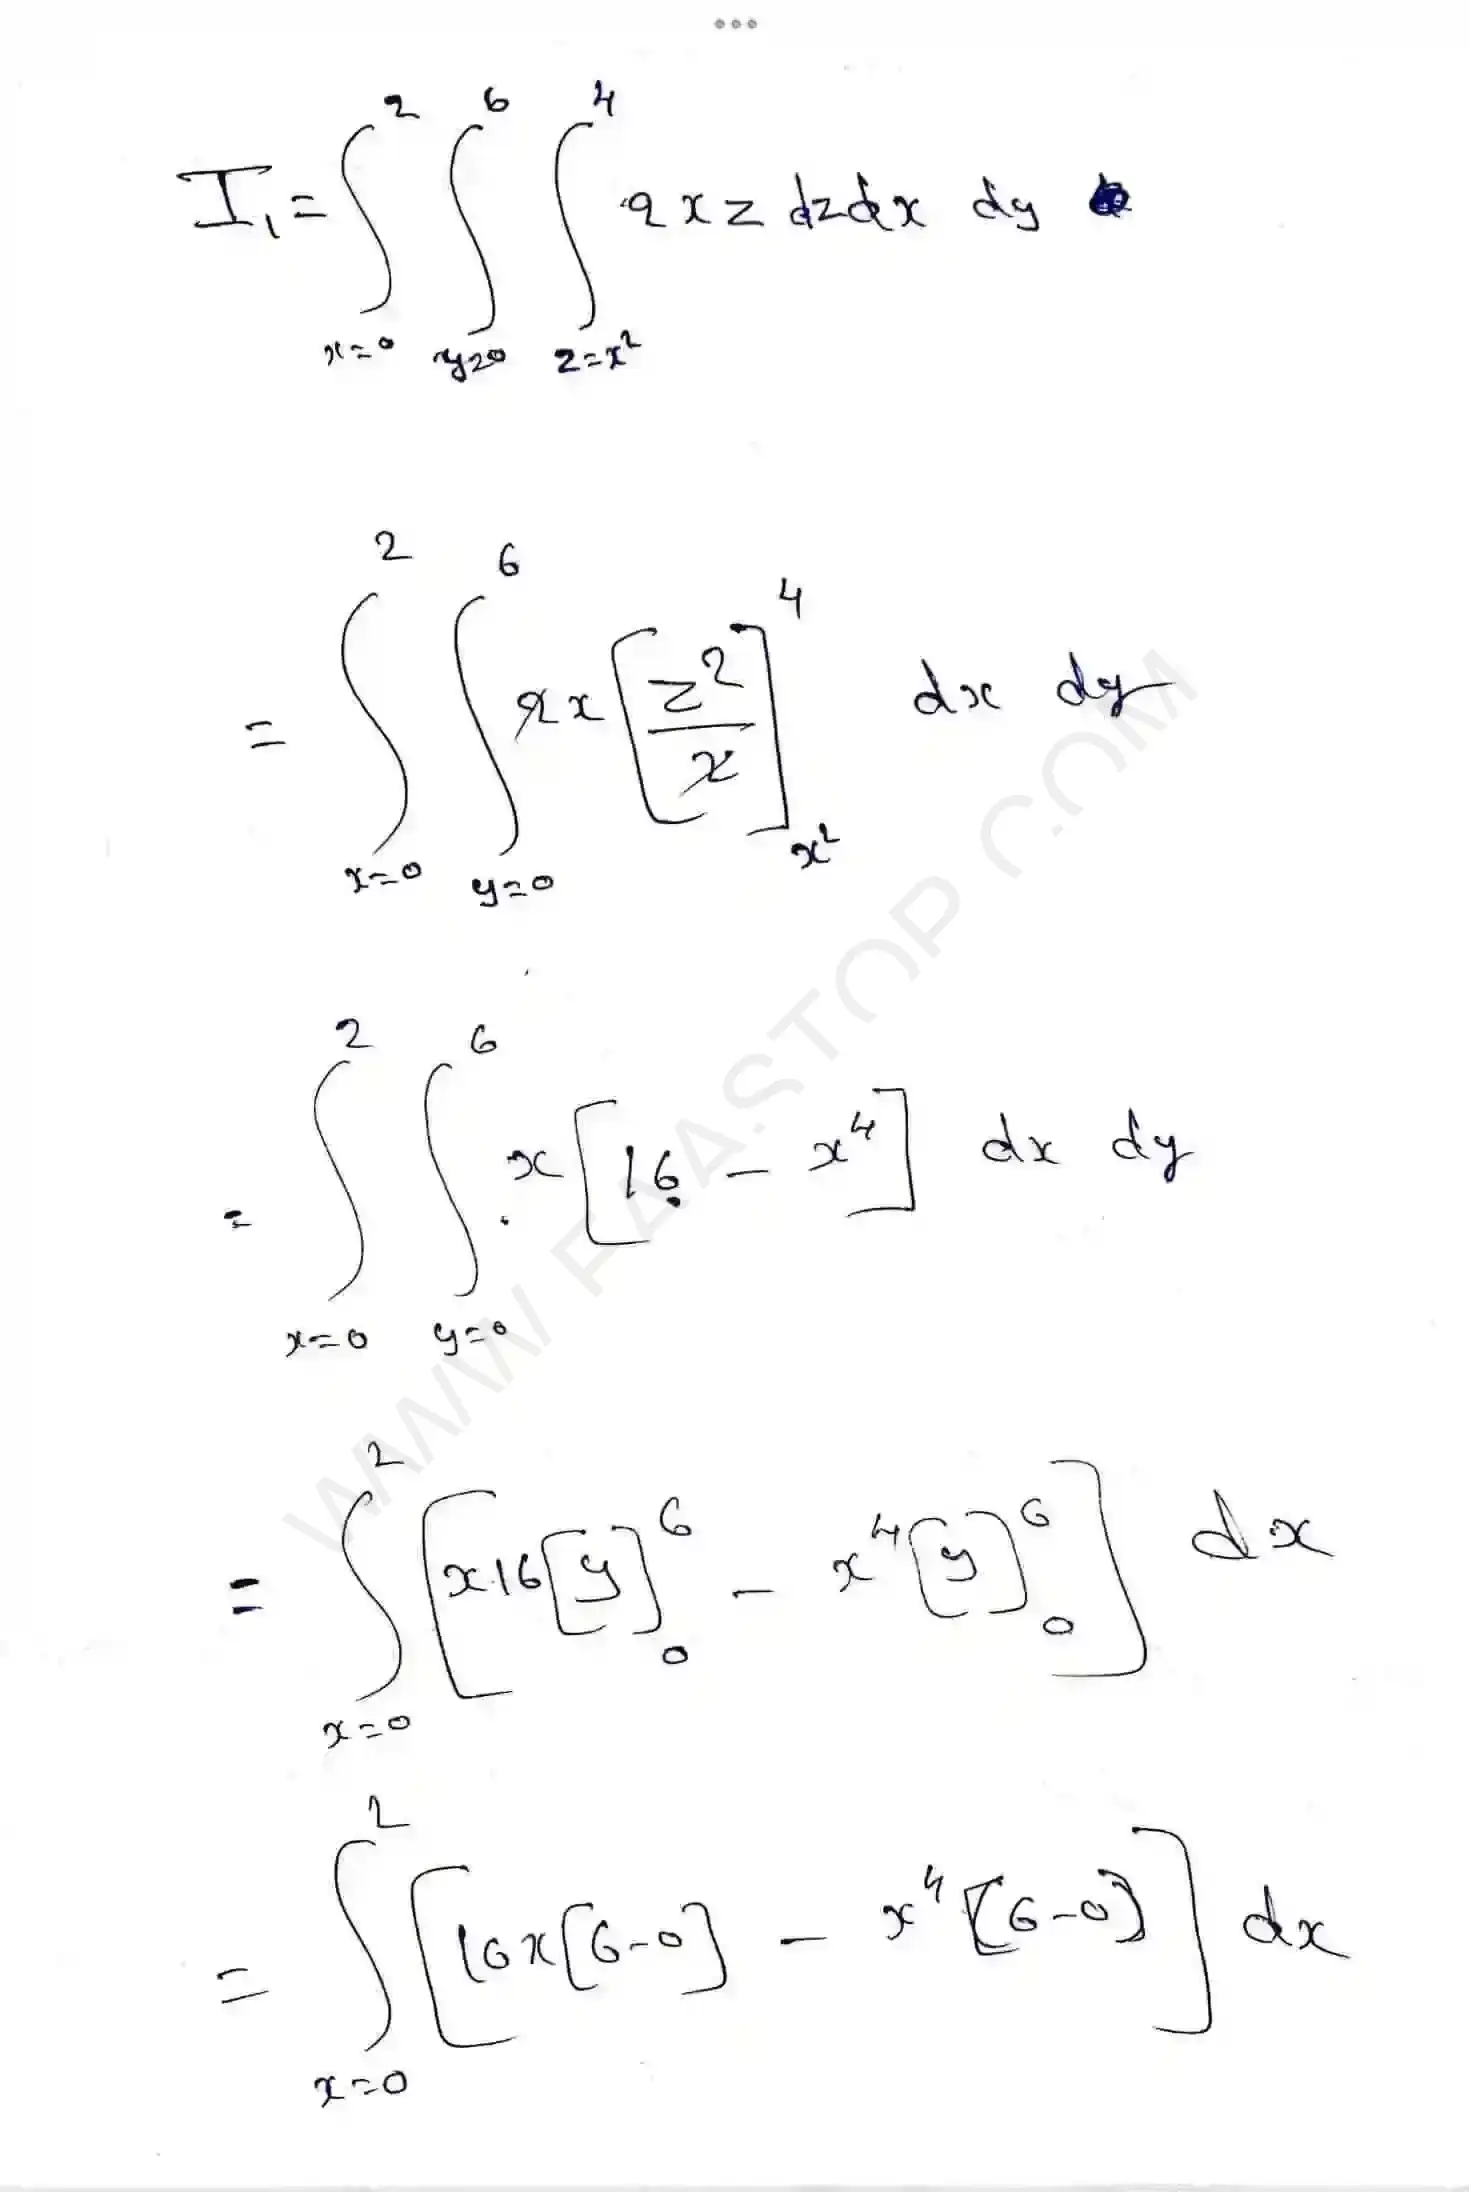 I₁ = ∫_{x=0}^{2} ∫_{y=0}^{6} ∫_{z=x²}^{4} 2xz dz dx dy
= ∫_{x=0}^{2} ∫_{y=0}^{6} 2x [z²/2]_{x²}^{4} dx dy
= ∫_{x=0}^{2} ∫_{y=0}^{6} x [16 - x⁴] dx dy
= ∫_{x=0}^{2} [x16[y]_{0}^{6} - x⁴[y]_{0}^{6}] dx
= ∫_{x=0}^{2} [16x[6-0] - x⁴[6-0]] dx
WWW.FAASTOP.COM